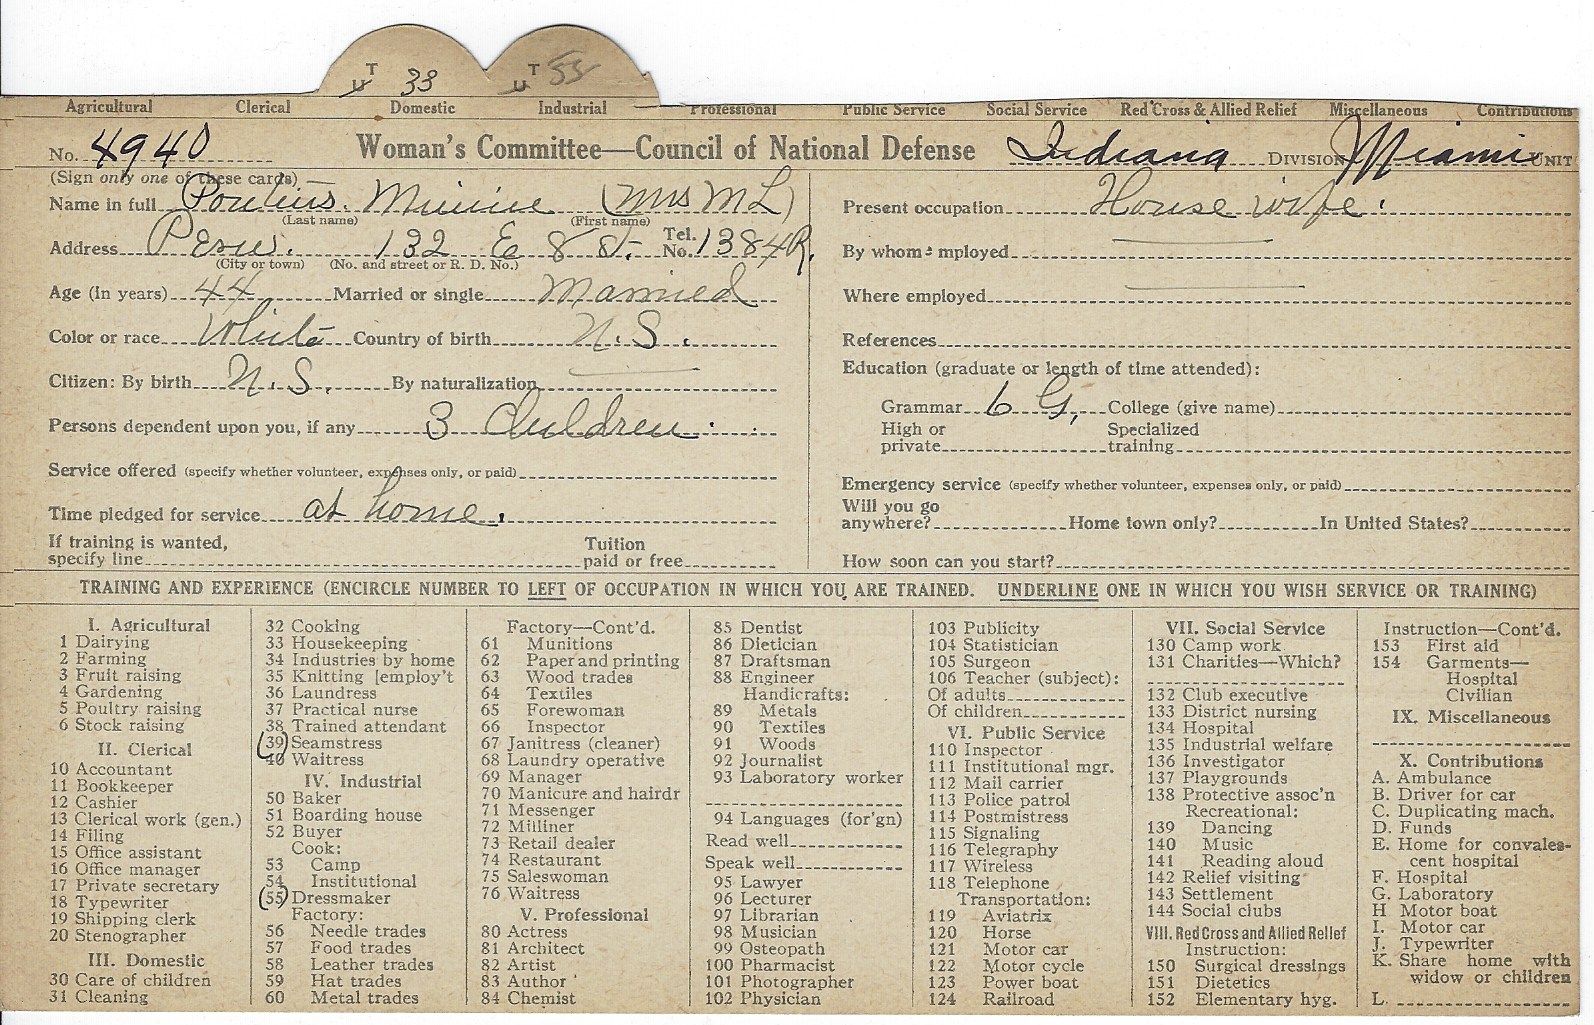 U T 33 U T 55
Agricultural Clerical Domestic Industrial Professional Public Service Social Service Red Cross & Allied Relief Miscellaneous Contributions
No. 4940 Woman's Committee—Council of National Defense Indiana DIVISION Miami UNIT
(Sign only one of these cards)
Name in full Pontius. Minnie (Mrs M L)
(Last name) (First name)
Address Peru. 132 E 8 St. Tel. No. 1384R.
(City or town) (No. and street or R. D. No.)
Age (In years) 44 Married or single Married
Color or race White Country of birth U.S.
Citizen: By birth U.S. By naturalization
Persons dependent upon you, if any 3 Children
Service offered (specify whether volunteer, expenses only, or paid)
Time pledged for service at home.
If training is wanted, specify line Tuition paid or free
Present occupation House wife.
By whom emplyed
Where employed
References
Education (graduate or length of time attended):
Grammar 6 G, College (give name)
High or private Specialized training
Emergency service (specify whether volunteer, expenses only, or paid)
Will you go anywhere? Home town only? In United States?
How soon can you start?
TRAINING AND EXPERIENCE (ENCIRCLE NUMBER TO LEFT OF OCCUPATION IN WHICH YOU ARE TRAINED. UNDERLINE ONE IN WHICH YOU WISH SERVICE OR TRAINING)
I. Agricultural
1 Dairying
2 Farming
3 Fruit raising
4 Gardening
5 Poultry raising
6 Stock raising
II. Clerical
10 Accountant
11 Bookkeeper
12 Cashier
13 Clerical work (gen.)
14 Filing
15 Office assistant
16 Office manager
17 Private secretary
18 Typewriter
19 Shipping clerk
20 Stenographer
III. Domestic
30 Care of children
31 Cleaning
32 Cooking
33 Housekeeping
34 Industries by home
35 Knitting [employ't
36 Laundress
37 Practical nurse
38 Trained attendant
39 Seamstress
40 Waitress
IV. Industrial
50 Baker
51 Boarding house
52 Buyer
Cook:
53 Camp
54 Institutional
55 Dressmaker
Factory:
56 Needle trades
57 Food trades
58 Leather trades
59 Hat trades
60 Metal trades
Factory—Cont'd.
61 Munitions
62 Paper and printing
63 Wood trades
64 Textiles
65 Forewoman
66 Inspector
67 Janitress (cleaner)
68 Laundry operative
69 Manager
70 Manicure and hairdr
71 Messenger
72 Milliner
73 Retail dealer
74 Restaurant
75 Saleswoman
76 Waitress
V. Professional
80 Actress
81 Architect
82 Artist
83 Author
84 Chemist
85 Dentist
86 Dietician
87 Draftsman
88 Engineer
Handicrafts:
89 Metals
90 Textiles
91 Woods
92 Journalist
93 Laboratory worker
94 Languages (for'gn)
Read well
Speak well
95 Lawyer
96 Lecturer
97 Librarian
98 Musician
99 Osteopath
100 Pharmacist
101 Photographer
102 Physician
103 Publicity
104 Statistician
105 Surgeon
106 Teacher (subject):
Of adults
Of children
VI. Public Service
110 Inspector
111 Institutional mgr.
112 Mail carrier
113 Police patrol
114 Postmistress
115 Signaling
116 Telegraphy
117 Wireless
118 Telephone
Transportation:
119 Aviatrix
120 Horse
121 Motor car
122 Motor cycle
123 Power boat
124 Railroad
VII. Social Service
130 Camp work
131 Charities—Which?
132 Club executive
133 District nursing
134 Hospital
135 Industrial welfare
136 Investigator
137 Playgrounds
138 Protective assoc'n
Recreational:
139 Dancing
140 Music
141 Reading aloud
142 Relief visiting
143 Settlement
144 Social clubs
VIII. Red Cross and Allied Relief
Instruction:
150 Surgical dressings
151 Dietetics
152 Elementary hyg.
Instruction—Cont'd.
153 First aid
154 Garments—
Hospital
Civilian
IX. Miscellaneous
X. Contributions
A. Ambulance
B. Driver for car
C. Duplicating mach.
D. Funds
E. Home for convales-
cent hospital
F. Hospital
G. Laboratory
H Motor boat
I. Motor car
J. Typewriter
K. Share home with
widow or children
L.